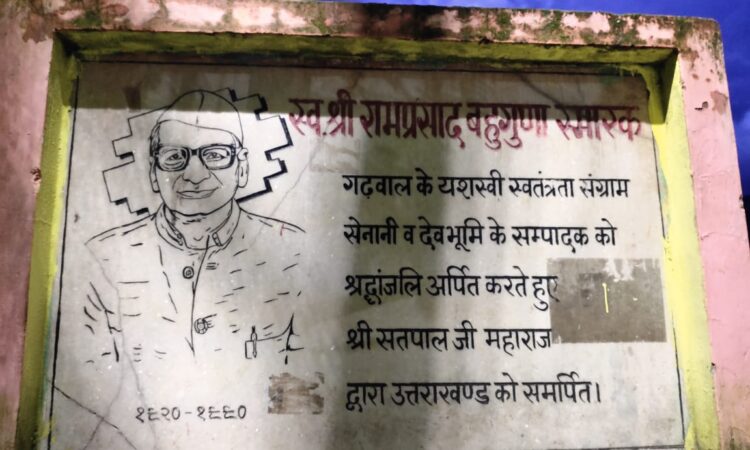 स्व. श्री रामप्रसाद बहुगुणा स्मारक
गढ़वाल के यशस्वी स्वतंत्रता संग्राम
सेनानी व देवभूमि के सम्पादक को
श्रद्धांजलि अर्पित करते हुए
श्री सतपाल जी महाराज
द्वारा उत्तराखण्ड को समर्पित।
१९२०-१९९०